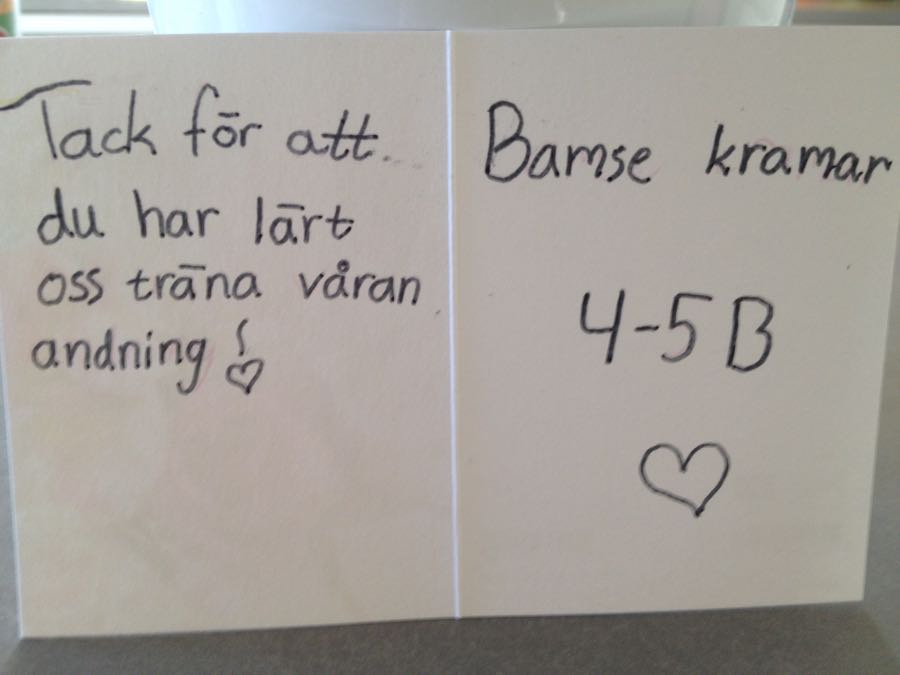 Tack för att
du har lärt
oss träna våran
andning!
Bamse kramar
4-5 B